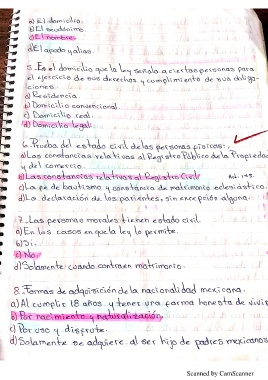 a) El domicilio.
b) El seudónimo
c) El nombre
d) El apodo y alias.
5.-Es el domicilio que la ley señala a ciertas personas para
el ejercicio de sus derechos y cumplimiento de sus obliga-
ciones.
a) Residencia.
b) Domicilio convencional.
c) Domicilio real.
d) Domicilio legal.
6.-Prueba del estado civil de las personas físicas:
a) Las constancias relativas al Registro Público de la Propiedad
y del comercio.
b) Las constancias relativas al Registro Civil
c) La fe de bautismo y constancia de matrimonio eclesiástico.
d) La declaración de los parientes, sin excepción alguna.
7.-Las personas morales tienen estado civil.
a) En los casos en que la ley lo permite.
b) Si.
c) No
d) Solamente cuando contraen matrimonio.
8.-Formas de adquisición de la nacionalidad mexicana.
a) Al cumplir 18 años y tener una forma honesta de vivir
b) Por nacimiento y naturalización
c) Por uso y disfrute.
d) Solamente se adquiere al ser hijo de padres mexicanos
Scanned by CamScanner